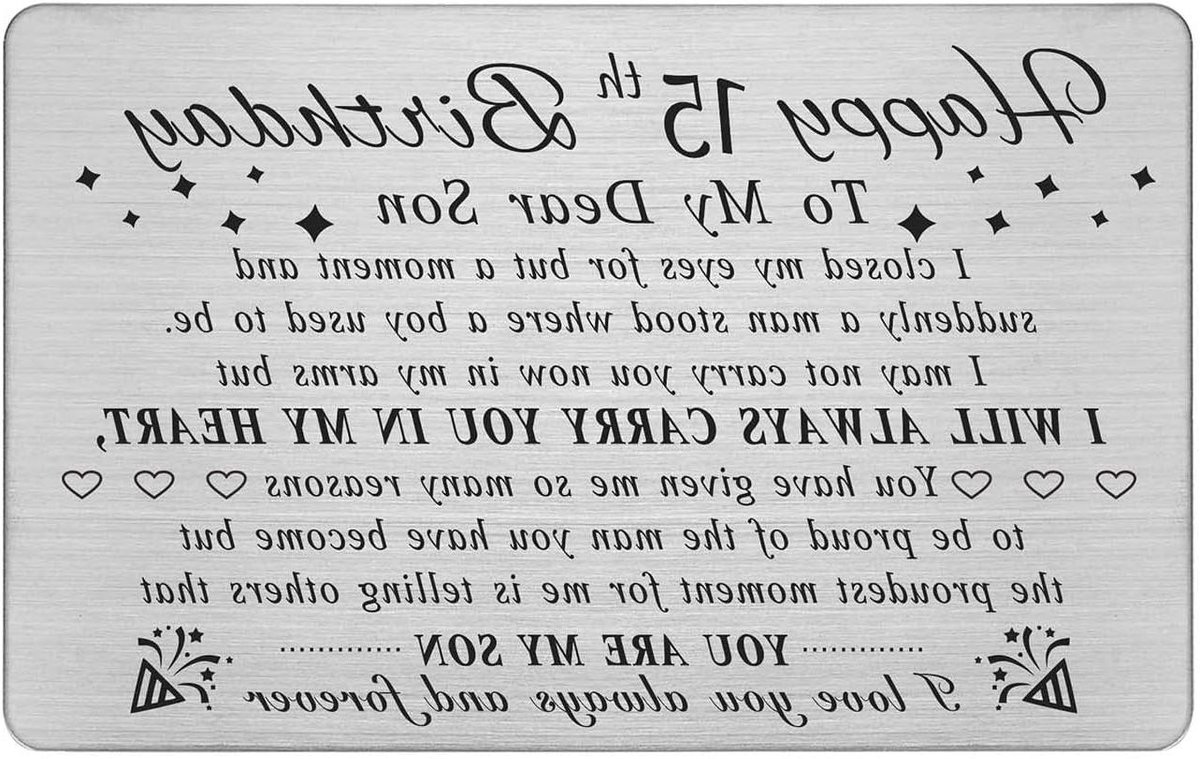 Happy 15th Birthday
To My Dear Son
I closed my eyes for but a moment and
suddenly a man stood where a boy used to be.
I may not carry you now in my arms but
I WILL ALWAYS CARRY YOU IN MY HEART,
You have given me so many reasons
to be proud of the man you have become but
the proudest moment for me is telling others that
YOU ARE MY SON
I love you always and forever